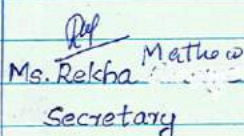 Ms. Rekha Mathew
Secretary